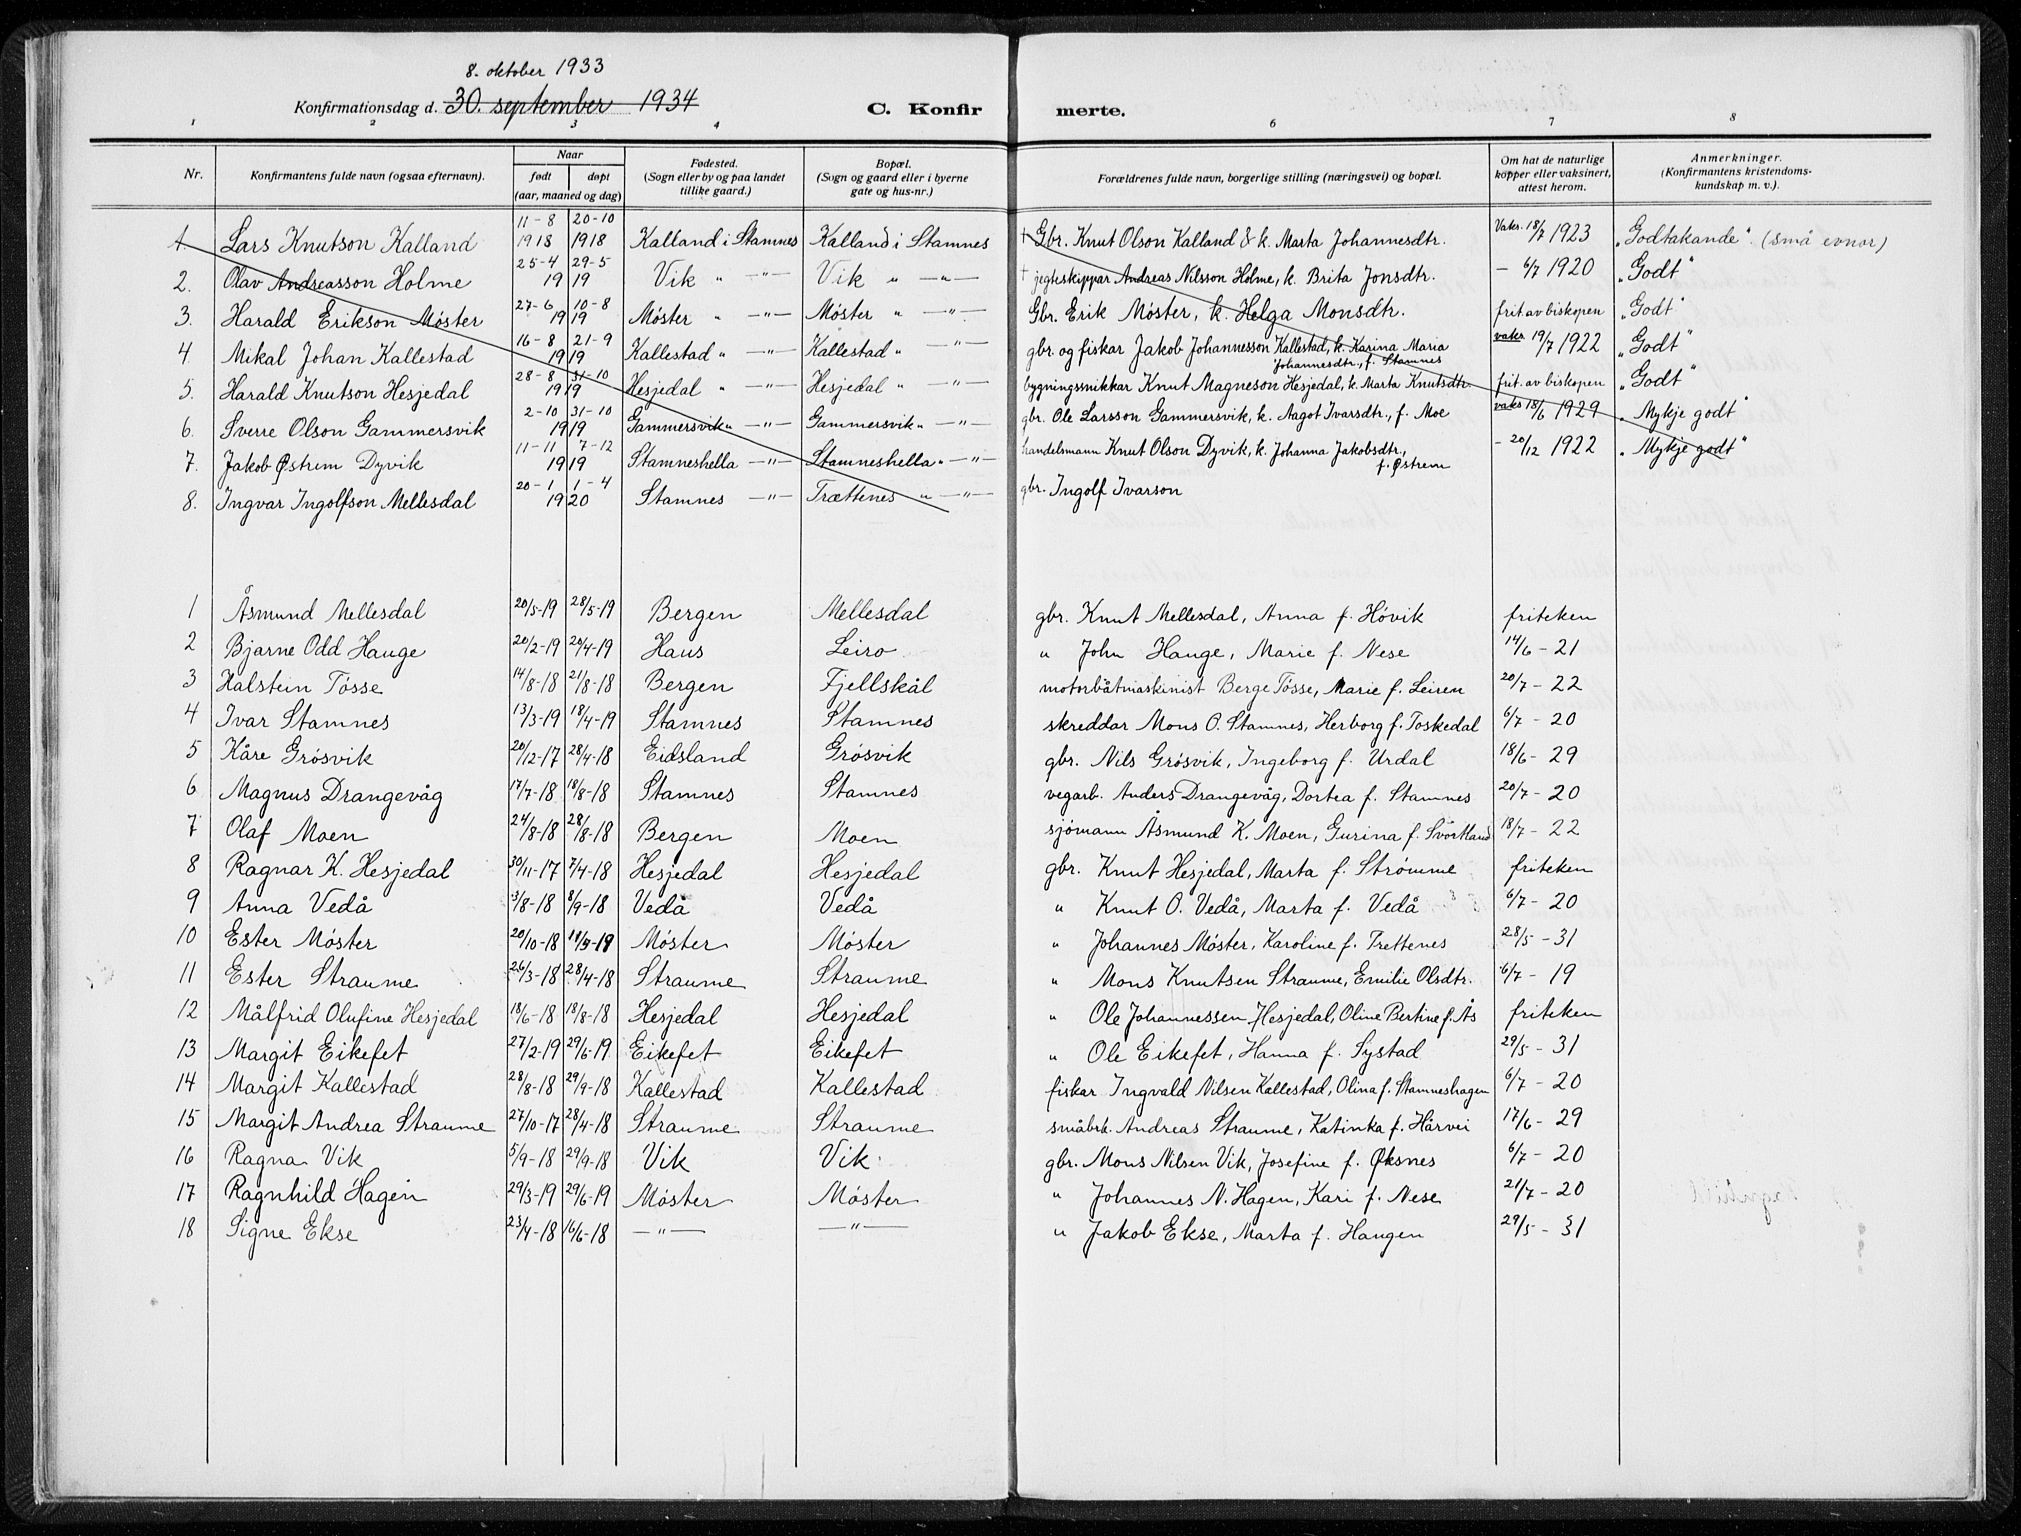 8. oktober 1933
Konfirmationsdag d. 30. september 1934 C. Konfir merte.
1 2 3 4 6 7 8
Nr. Konfirmantens fulde navn (ogsaa efternavn). Naar født døpt (aar, maaned og dag) Fødested. (Sogn eller by og paa landet tillike gaard.) Bopæl. (Sogn og gaard eller i byerne gate og hus-nr.) Forældrenes fulde navn, borgerlige stilling (næringsvei) og bopæl. Om hat de naturlige kopper eller vaksinert, attest herom. Anmerkninger. (Konfirmantens kristendoms- kundskap m. v.).
1. Lars Knutson Kalland 11-8 1918 20-10 1918 Kalland i Stamnes Kalland i Stamnes † Gbr. Knut Olson Kalland & k. Marta Johannesdtr. Vaks. 18/7 1923 „Godtakande“ (små evnor)
2. Olav Andreasson Holme 25-4 29-5 1919 Vik " -"- Vik " -"- † jegteskippar Andreas Nilsson Holme, k. Brita Jonsdtr. - 6/7 1920 „Godt“
3. Harald Erikson Møster 27-6 10-8 1919 Møster " -"- Møster " -"- Gbr. Erik Møster, k. Helga Monsdtr. frit av biskopen „Godt“
4 Mikal Johan Kallestad 16-8 21-9 1919 Kallestad " -"- Kallestad " -"- gbr. og fiskar Jakob Johannesson Kallestad, k. Karina Maria Johannesdtr., f. Stamnes vaks 19/7 1922 „Godt“
5. Harald Knutson Hesjedal 28-8 31-10 1919 Hesjedal " -"- Hesjedal " -"- bygningssnikkar Knut Magneson Hesjedal, k. Marta Knutsdtr. frit. av biskopen „Godt“
6. Sverre Olson Gammersvik 2-10 31-10 1919 Gammersvik " -"- Gammersvik " -"- gbr. Ole Larsson Gammersvik, k. Aagot Ivarsdtr., f. Moe vaks 18/6 1929 „Mykje godt“
7. Jakob Østrem Dyvik 11-11 7-12 1919 Stamneshella -"- Stamneshella " -"- handelsmann Knut Olson Dyvik, k. Johanna Jakobsdtr., f. Østrem - 20/12 1922 „Mykje godt“
8. Ingvar Ingolfson Mellesdal 20-1 1-4 1920 Stamnes -"- Trættenes " -"- gbr. Ingolf Ivarson
1 Åsmund Mellesdal 20/5-19 28/5-19 Bergen Mellesdal gbr. Knut Mellesdal, Anna f. Høvik friteken
2 Bjarne Odd Hauge 20/2-19 20/4-19 Haus Leiro " John Hauge, Marie f. Nese 14/6 - 21
3 Halstein Tósse 14/8-18 21/8-18 Bergen Fjellskål motorbåtmaskinist Berge Tósse, Marie f. Leiren 20/7 - 22
4 Ivar Stamnes 13/3-19 18/4-19 Stamnes Stamnes skreddar Mons O. Stamnes, Herborg f. Toskedal 6/7 - 20
5 Kåre Grósvik 20/12-17 28/4-18 Eidsland Grósvik gbr. Nils Grósvik, Ingeborg f. Urdal 18/6 - 29
6 Magnus Drangevåg 17/7-18 18/8-18 Stamnes Stamnes vegarb. Anders Drangevåg, Dortea f. Stamnes 20/7 - 20
7 Olaf Moen 24/8-18 28/8-18 Bergen Moen sjómann Åsmund K. Moen, Gurina f. Svórtland 18/7 - 22
8 Ragnar K. Hesjedal 30/11-17 7/4-18 Hesjedal Hesjedal gbr. Knut Hesjedal, Marta f. Strómme friteken
9 Anna Vedå 3/8-18 8/9-18 Vedå Vedå " Knut O. Vedå, Marta f. Vedå 6/7 - 20
10 Ester Móster 20/10-18 Móster Móster " Johannes Móster, Karoline f. Trettenes 28/5 - 31
11 Ester Straume 26/3-18 28/4-18 Straume Straume " Mons Knutsen Straume, Emilie Olsdtr. 6/7 - 19
12 Målfrid Olufine Hesjedal 18/6-18 18/8-18 Hesjedal Hesjedal " Ole Johannessen Hesjedal, Oline Bertine f. Ås friteken
13 Margit Eikefet 27/2-19 29/6-19 Eikefet Eikefet " Ole Eikefet, Hanna f. Systad 29/5 - 31
14 Margit Kallestad 28/8-18 29/9-18 Kallestad Kallestad fiskar Ingvald Nilsen Kallestad, Olina f. Stamneshagen 6/7 - 20
15 Margit Andrea Straume 27/10-17 28/4-18 Straume Straume småbrk. Andreas Straume, Katinka f. Hårvei 17/6 - 29
16 Ragna Vik 5/9-18 29/9-18 Vik Vik gbr. Mons Nilsen Vik, Josefine f. Øksnes 6/7 - 20
17 Ragnhild Hagen 29/3-19 29/6-19 Móster Móster " Johannes N. Hagen, Kari f. Nese 21/7 - 20
18 Signe Ekse 23/4-18 16/6-18 -"- -"- " Jakob Ekse, Marta f. Haugen 29/5 - 31